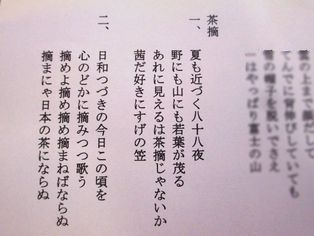 雲の上まで顔だして
てんでに背伸びしていても
雪の帽子を脱いでさえ
一はやっぱり富士の山
茶摘
一、
夏も近づく八十八夜
野にも山にも若葉が茂る
あれに見えるは茶摘じゃないか
茜だ好きにすげの笠
二、
日和つづきの今日この頃を
心のどかに摘みつつ歌う
摘めよ摘め摘め摘まねばならぬ
摘まにゃ日本の茶にならぬ